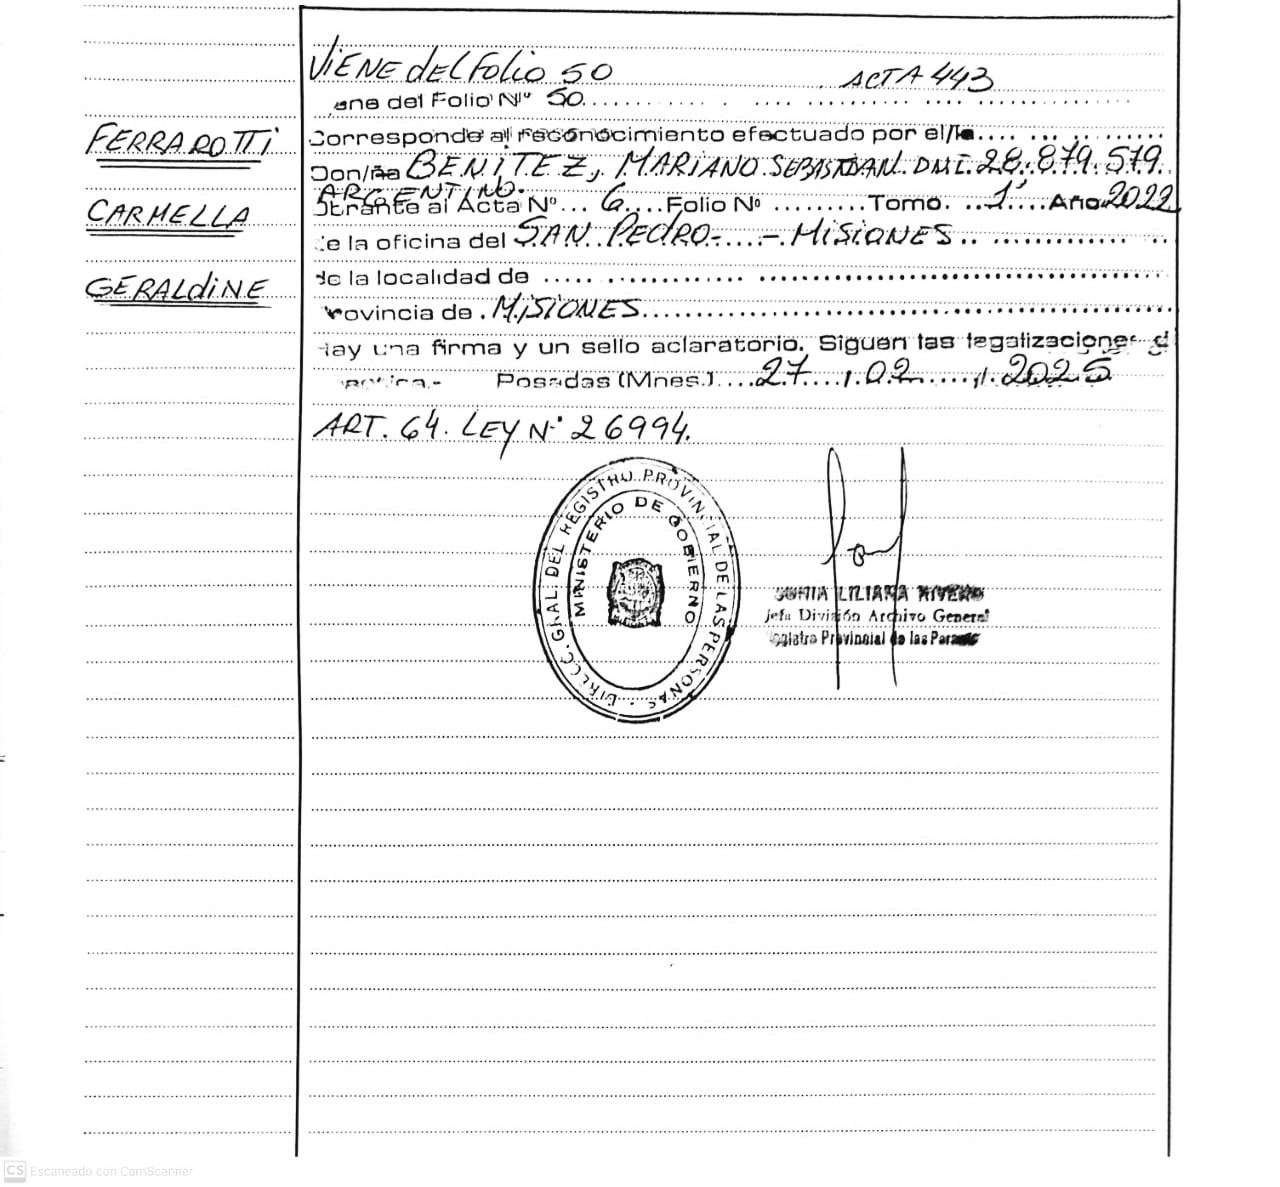 ViENE dEL Folio 50 ACTA 443
ene del Folio Nº 50
FERRAROTTi
CARMELLA
GERALdiNE
Corresponde al reconocimiento efectuado por el/la
Don/ña BENITEZ, MARIANO SEBASTIAN. DNI. 28.879.579.
ARGENTINO.
Obrante al Acta Nº... 6....Folio Nº .........Tomo. ..1º....Año 2022
de la oficina del SAN PEDRO-....-.MiSiONES
de la localidad de
Provincia de . MiSiONES
Hay una firma y un sello aclaratorio. Siguen las legalizaciones d
Posadas (Mnes.)....27..../.02...../.2025
ART. 64. LEY Nº 26994.
DIRECC. GRAL. DEL REGISTRO PROVINCIAL DE LAS PERSONAS
MINISTERIO DE GOBIERNO
LILIANA RIVERO
Jefa División Archivo General
Registro Provincial de las Personas
CS Escaneado con CamScanner